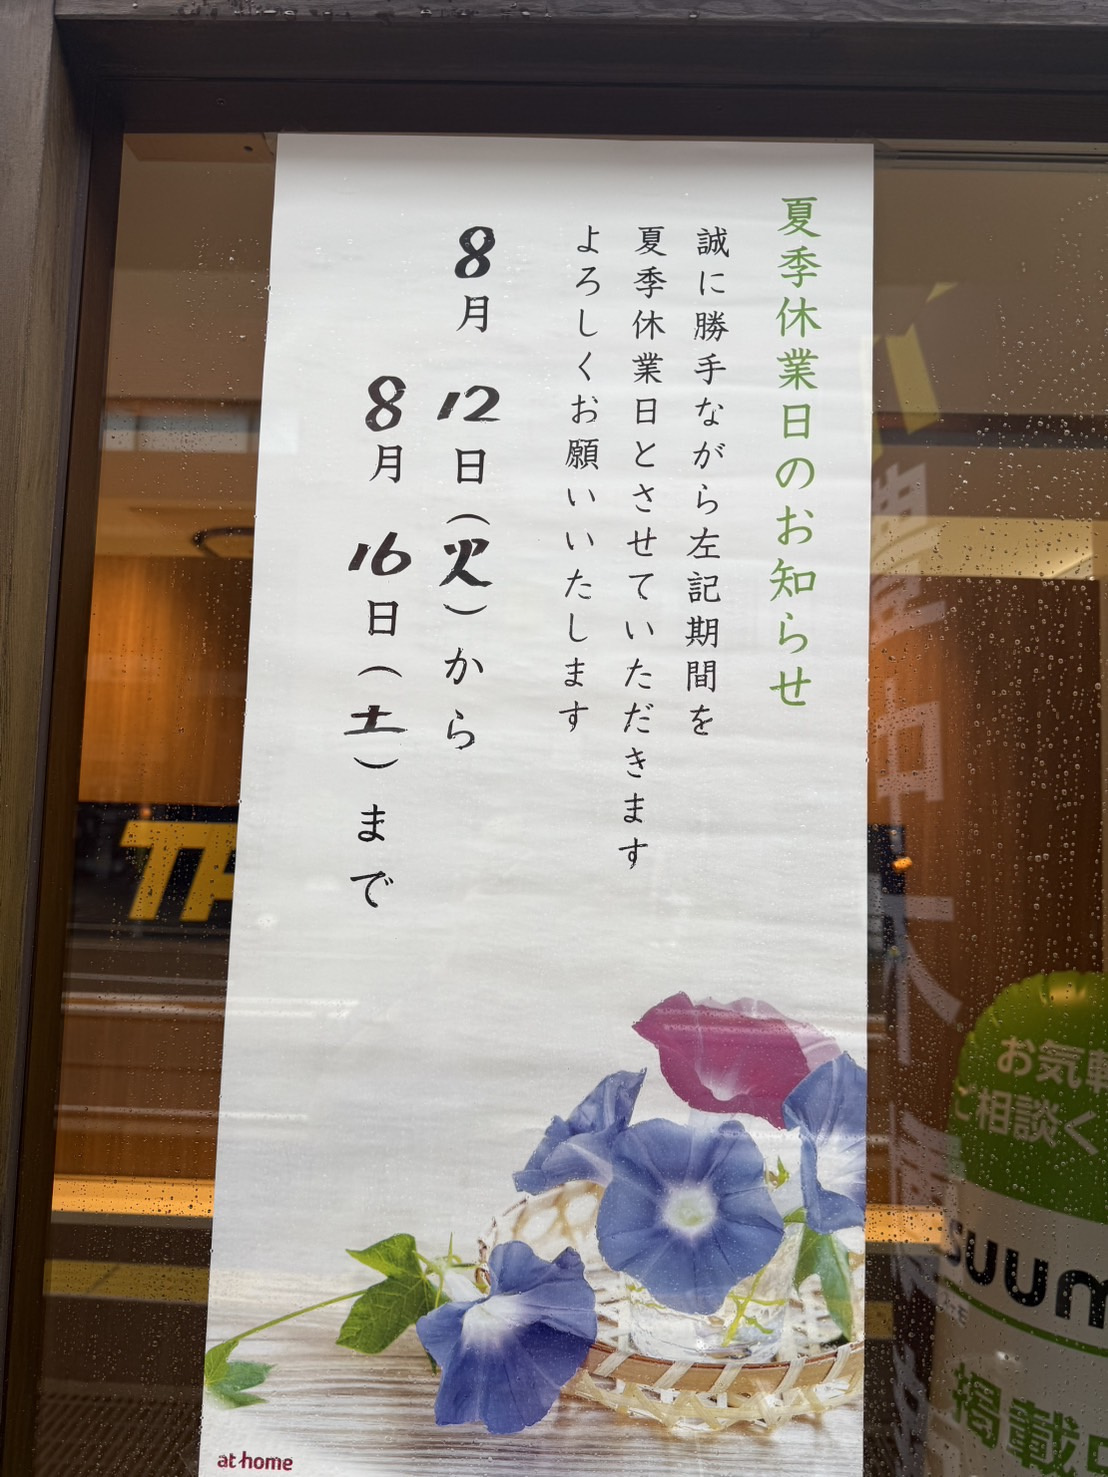 夏季休業日のお知らせ
誠に勝手ながら左記期間を
夏季休業日とさせていただきます
よろしくお願いいたします
8月 12日(火)から
8月 16日(土)まで
at home
お気軽
ご相談く
suum
掲載中